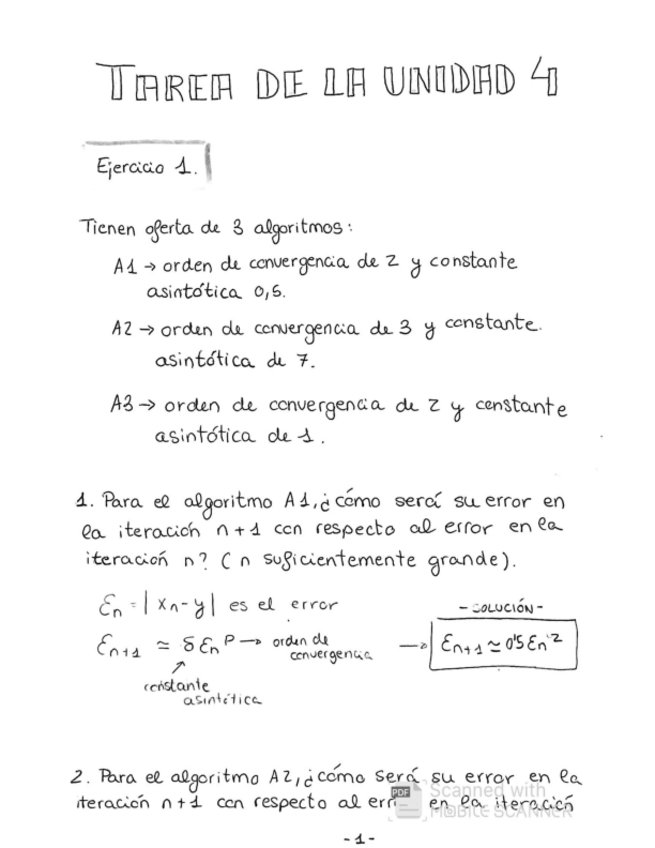 TAREA DE LA UNIDAD 4
Ejercicio 1.
Tienen oferta de 3 algoritmos:
A1 → orden de convergencia de 2 y constante
asintótica 0,5.
A2 → orden de convergencia de 3 y constante.
asintótica de 7.
A3 → orden de convergencia de 2 y constante
asintótica de 1.
1. Para el algoritmo A1, ¿cómo será su error en
la iteración n+1 con respecto al error en la
iteración n? (n suficientemente grande).
Ɛn = |xn - y| es el error
- SOLUCIÓN -
Ɛn+1 ≃ δ Ɛn^p → orden de
convergencia
→ Ɛn+1 ≃ 0'5 Ɛn^2
constante
asintótica
2. Para el algoritmo A2, ¿cómo será su error en la
iteración n+1 con respecto al err en la iteración
PDF Scanned with
MOBILE SCANNER
-1-